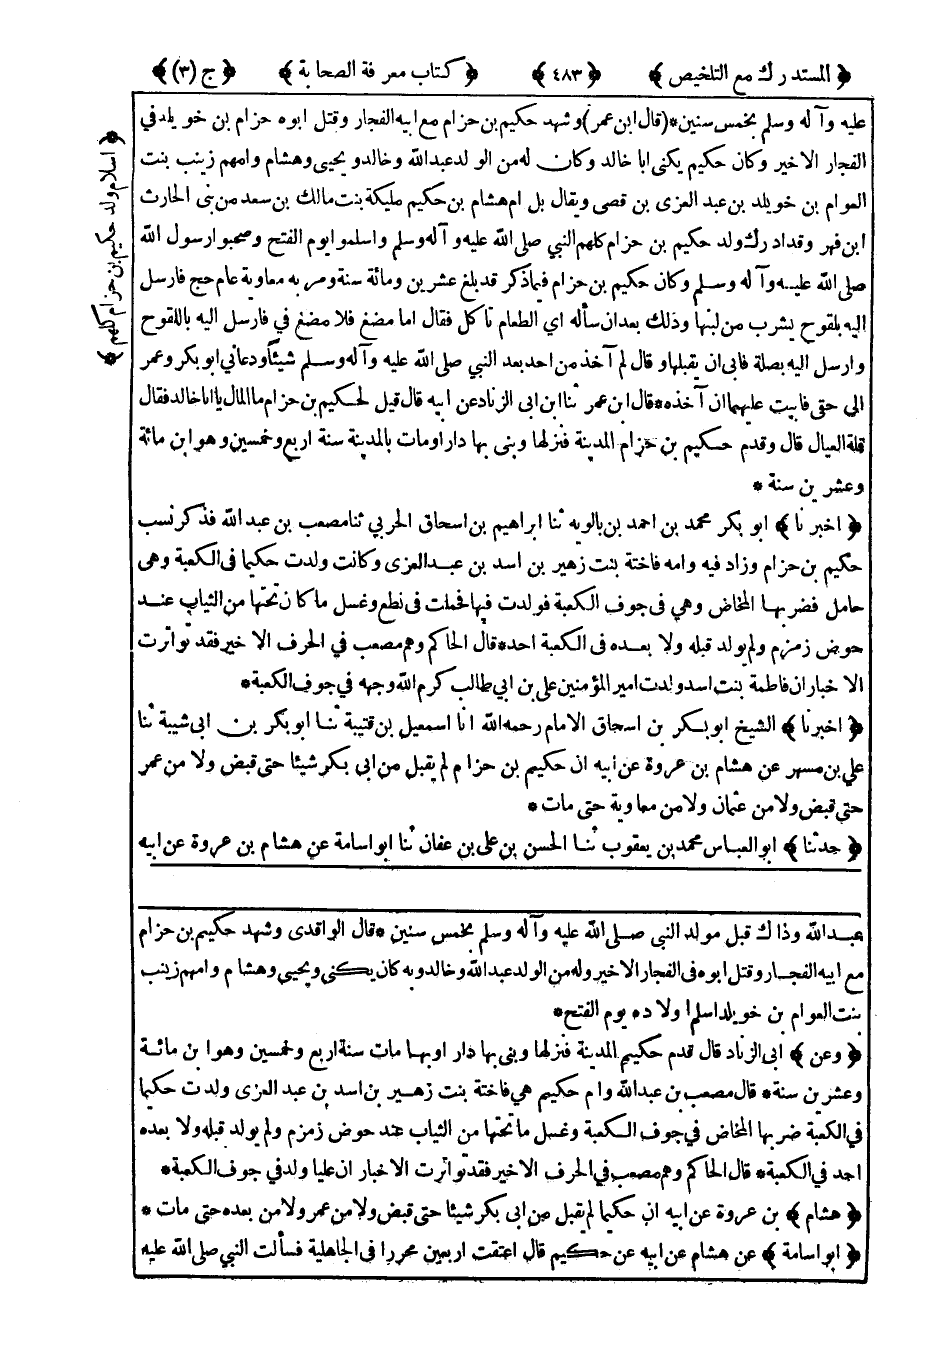 ﴿ المستدرك مع التلخيص ﴾ ﴿ ٤٨٣ ﴾ ﴿ كتاب معرفة الصحابة ﴾ ﴿ ج (٣) ﴾
عليه وآله وسلم بخمس سنين * (قال ابن عمر) وشهد حكيم بن حزام مع ابيه الفجار وقتل ابوه حزام بن خويلد في
الفجار الاخير وكان حكيم يكنى ابا خالد وكان له من الولد عبدالله وخالد ويحيى وهشام وامهم زينب بنت
العوام بن خويلد بن عبد العزى بن قصى ويقال بل ام هشام بن حكيم مليكة بنت مالك بن سعد من بنى الحارث
ابن فهر وقد ادرك ولد حكيم بن حزام كلهم النبي صلى الله عليه وآله وسلم واسلموا يوم الفتح وصحبوا رسول الله
صلى الله عليه وآله وسلم وكان حكيم بن حزام فيما ذكر قد بلغ عشرين ومائة سنة ومر به معاوية عام حج فارسل
اليه بلقوح يشرب من لبنها وذلك بعد ان سأله اي الطعام تأكل فقال اما مضغ فلا مضغ في فارسل اليه باللقوح
وارسل اليه بصلة فابى ان يقبلها وقال لم آخذ من احد بعد النبي صلى الله عليه وآله وسلم شيئا ودعاني ابو بكر وعمر
الى حتى فابيت عليهما ان آخذه * قال ابن عمر ثنا ابن ابى الزناد عن ابيه قال قيل لحكيم بن حزام ما المال يا ابا خالد فقال
قلة العيال قال وقدم حكيم بن حزام المدينة فنزلها وبنى بها دارا ومات بالمدينة سنة اربع وخمسين وهو ابن مائة
وعشرين سنة *
﴿ اخبرنا ﴾ ابو بكر محمد بن احمد بن بالويه ثنا ابراهيم بن اسحاق الحربي ثنا مصعب بن عبد الله فذكر نسب
حكيم بن حزام وزاد فيه وامه فاختة بنت زهير بن اسد بن عبد العزى وكانت ولدت حكيما فى الكعبة وهى
حامل فضربها المخاض وهي فى جوف الكعبة فولدت فيها فحملت فى نطع وغسل ما كان تحتها من الثياب عند
حوض زمزم ولم يولد قبله ولا بعده فى الكعبة احد * قال الحاكم وهم مصعب في الحرف الاخير فقد تواترت
الاخبار ان فاطمة بنت اسد ولدت امير المؤمنين على بن ابي طالب كرم الله وجهه في جوف الكعبة *
﴿ اخبرنا ﴾ الشيخ ابو بكر بن اسحاق الامام رحمه الله انا اسمعيل بن قتيبة ثنا ابو بكر بن ابى شيبة ثنا
علي بن مسهر عن هشام بن عروة عن ابيه ان حكيم بن حزام لم يقبل من ابى بكر شيئا حتى قبض ولا من عمر
حتى قبض ولا من عثمان ولا من معاوية حتى مات *
﴿ حدثنا ﴾ ابو العباس محمد بن يعقوب ثنا الحسن بن على بن عفان ثنا ابو اسامة عن هشام بن عروة عن ابيه
﴿ اسلام ولد حكيم بن حزام كلهم ﴾
عبد الله وذاك قبل مولد النبي صلى الله عليه وآله وسلم بخمس سنين * قال الواقدى وشهد حكيم بن حزام
مع ابيه الفجار وقتل ابوه فى الفجار الاخير وله من الولد عبد الله وخالد وبه كان يكنى ويحيى وهشام وامهم زينب
بنت العوام بن خويلد اسلم اولاده يوم الفتح *
﴿ وعن ﴾ ابى الزناد قال قدم حكيم المدينة فنزلها وبنى بها دارا وبها مات سنة اربع وخمسين وهو ابن مائة
وعشرين سنة * قال مصعب بن عبد الله وام حكيم هي فاختة بنت زهير بن اسد بن عبد العزى ولدت حكيما
في الكعبة ضربها المخاض في جوف الكعبة وغسل ما تحتها من الثياب عند حوض زمزم ولم يولد قبله ولا بعده
احد في الكعبة * قال الحاكم وهم مصعب في الحرف الاخير فقد تواترت الاخبار ان عليا ولد في جوف الكعبة *
﴿ هشام ﴾ بن عروة عن ابيه ان حكيما لم يقبل من ابى بكر شيئا حتى قبض ولا من عمر ولا من بعده حتى مات *
﴿ ابو اسامة ﴾ عن هشام عن ابيه عن حكيم قال اعتقت اربعين محررا فى الجاهلية فسألت النبي صلى الله عليه